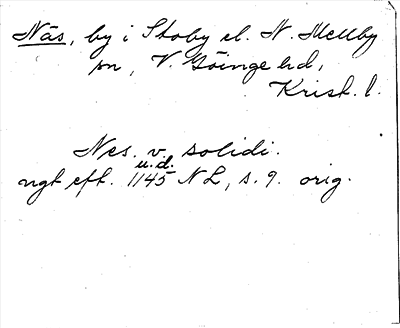 Näs, by i Stoby el. N. Mellby
sn, V. Göinge hd,
Krist. l.
Nes. v. solidi.
u.d.
ngt eft. 1145 NL, s. 9. orig.